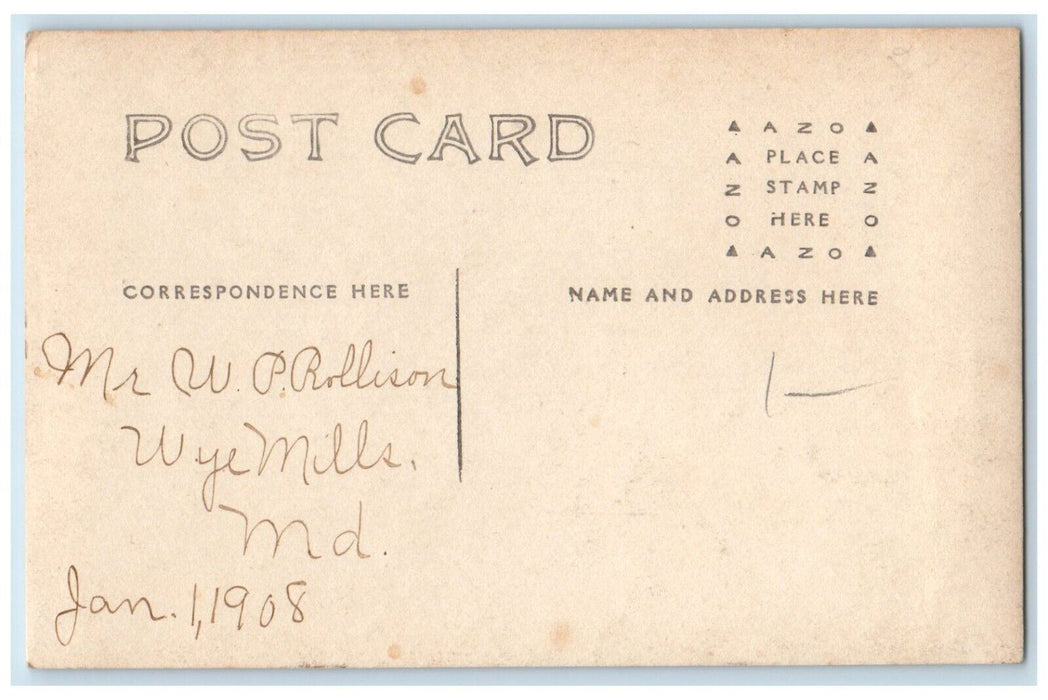 POST CARD
▲ A Z O ▲
A PLACE A
Z STAMP Z
O HERE O
▲ A Z O ▲
CORRESPONDENCE HERE
NAME AND ADDRESS HERE
Mr W. P. Rollison
Wye Mills,
Md.
Jan. 1, 1908
1—